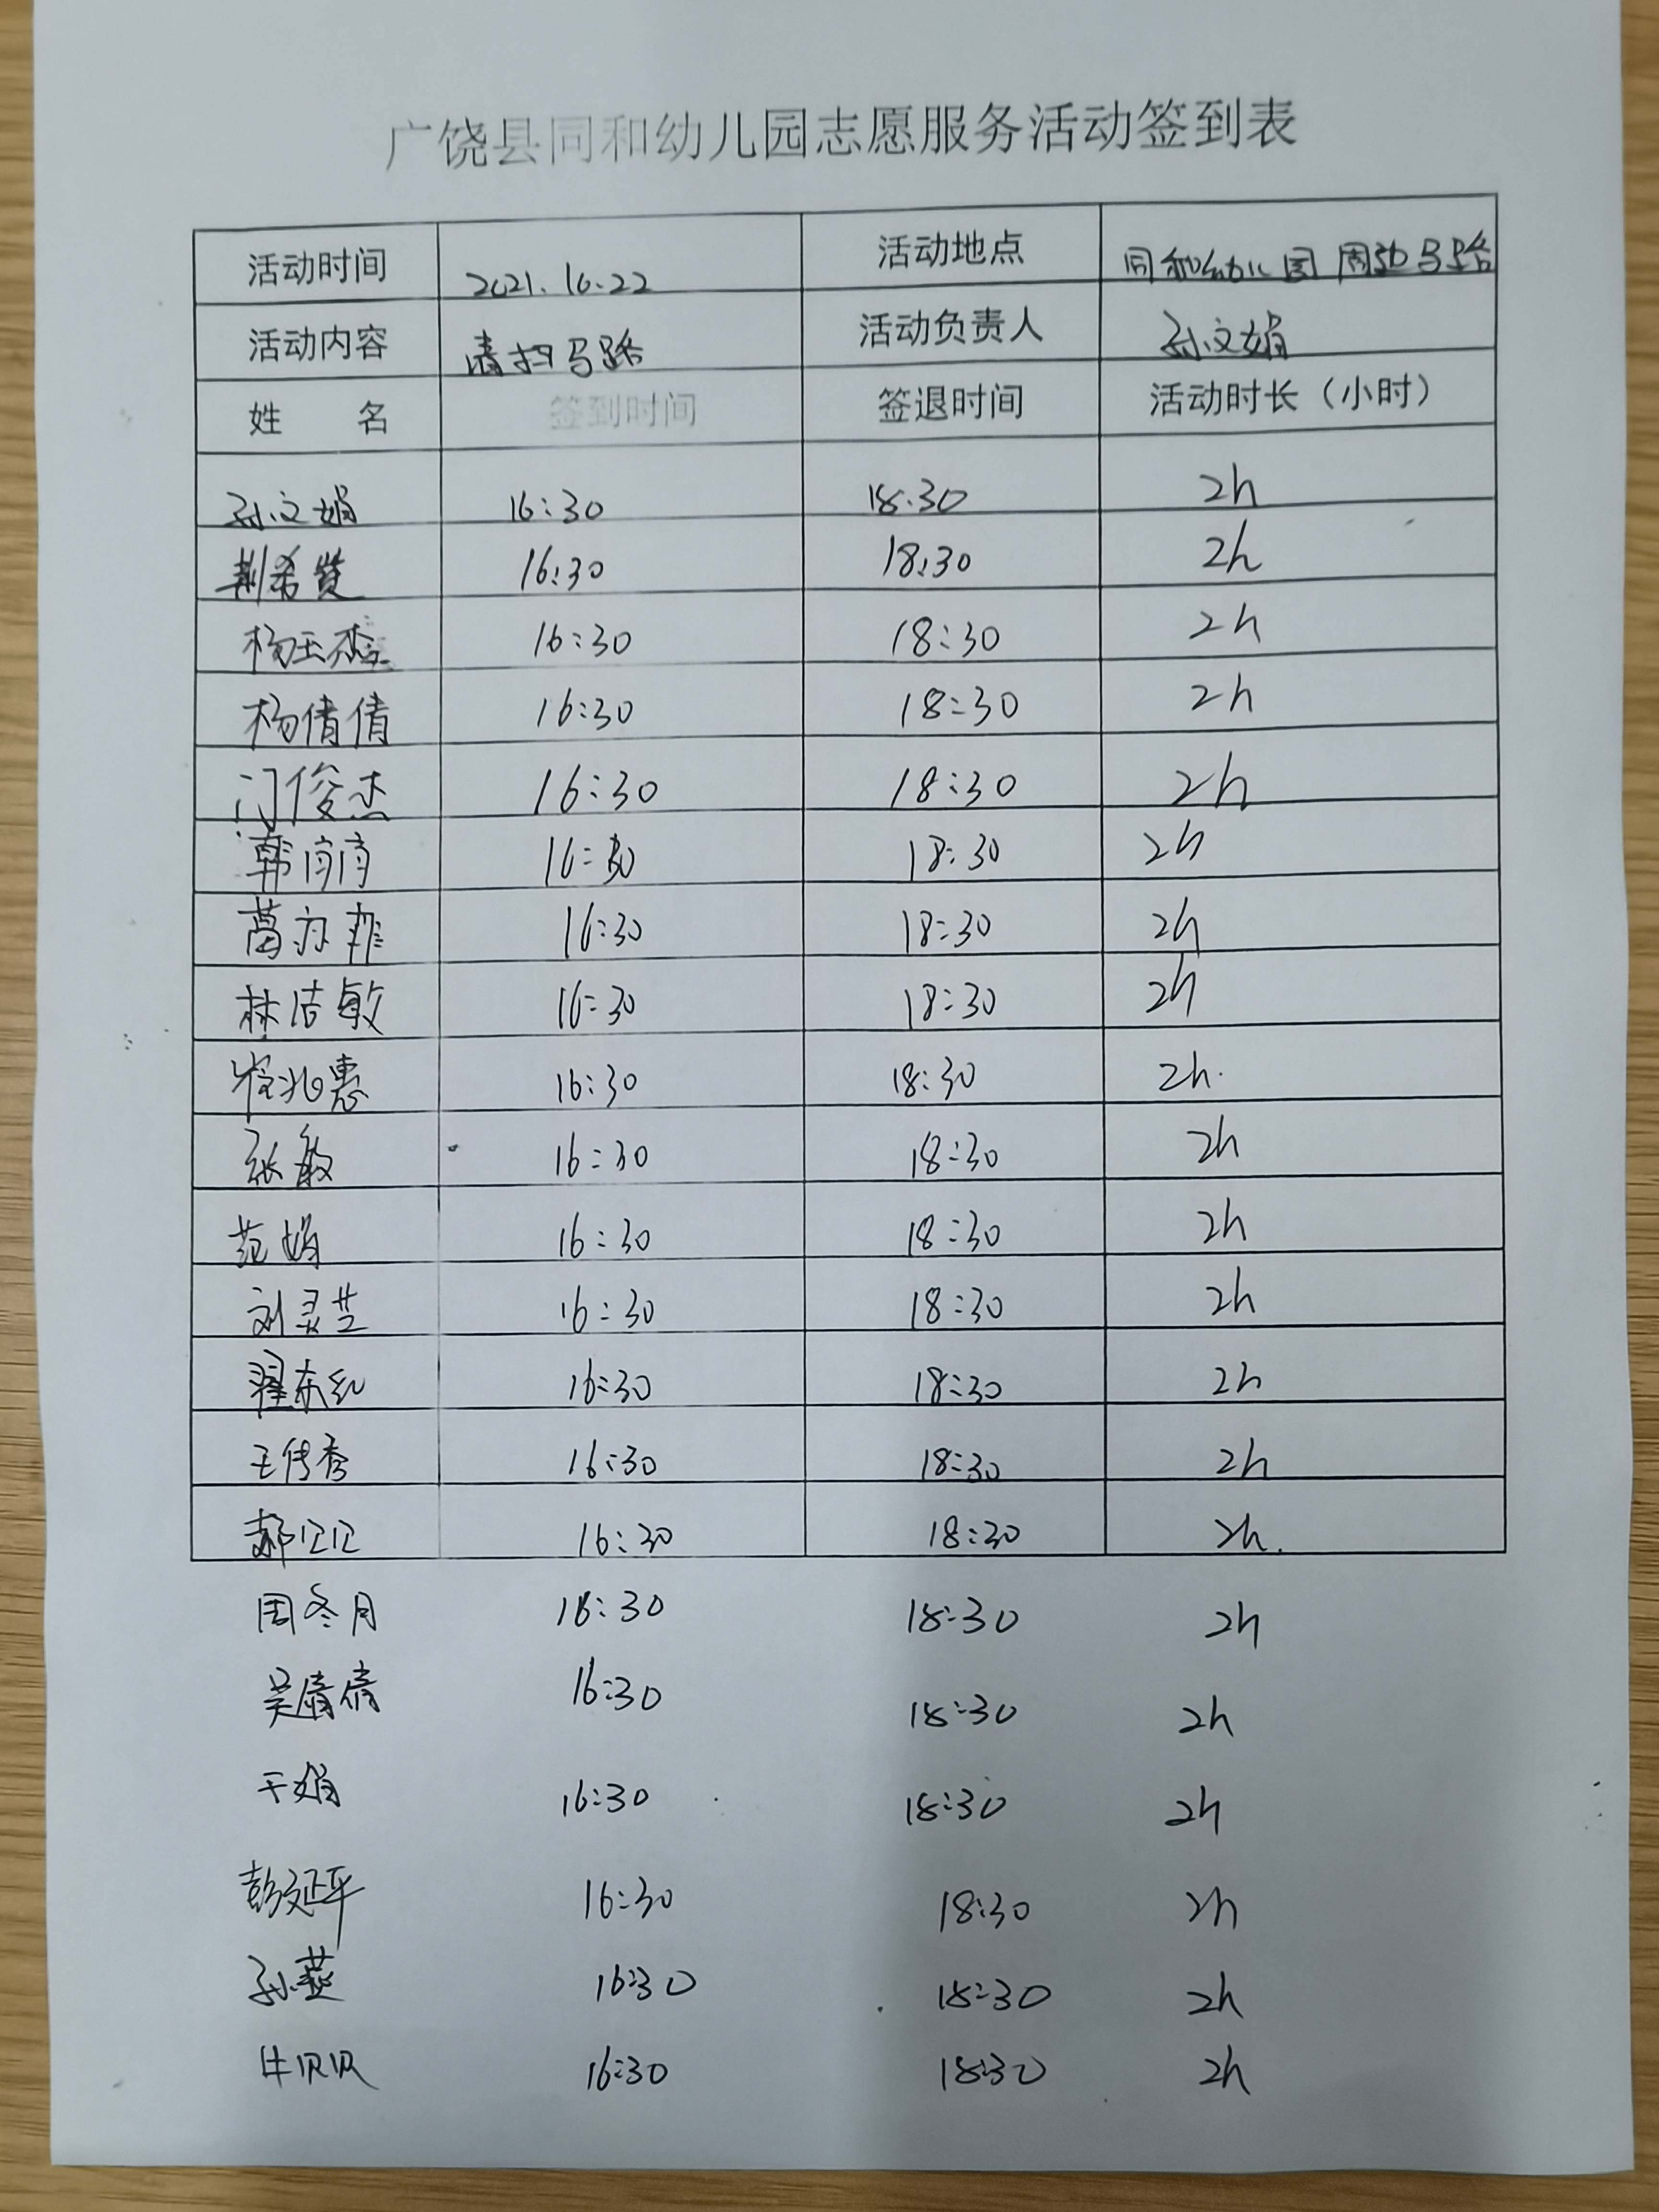 广饶县同和幼儿园志愿服务活动签到表
活动时间 2021.10.22 活动地点 同和幼儿园周边马路
活动内容 清扫马路 活动负责人 孙文娟
姓 名 签到时间 签退时间 活动时长（小时）
孙文娟 16:30 18:30 2h
荆希 16:30 18:30 2h
杨玉杰 16:30 18:30 2h
杨倩倩 16:30 18:30 2h
门俊杰 16:30 18:30 2h
韩 16:30 18:30 2h
葛亦菲 16:30 18:30 2h
林洁敏 16:30 18:30 2h
崔兆惠 16:30 18:30 2h.
张敏 16:30 18:30 2h
范娟 16:30 18:30 2h
刘灵芝 16:30 18:30 2h
翟东红 16:30 18:30 2h
王传秀 16:30 18:30 2h
郝贝贝 16:30 18:30 2h.
周冬月 16:30 18:30 2h
吴倩倩 16:30 18:30 2h
于娟 16:30 18:30 2h
彭延平 16:30 18:30 2h
孙燕 16:30 18:30 2h
牛贝贝 16:30 18:30 2h